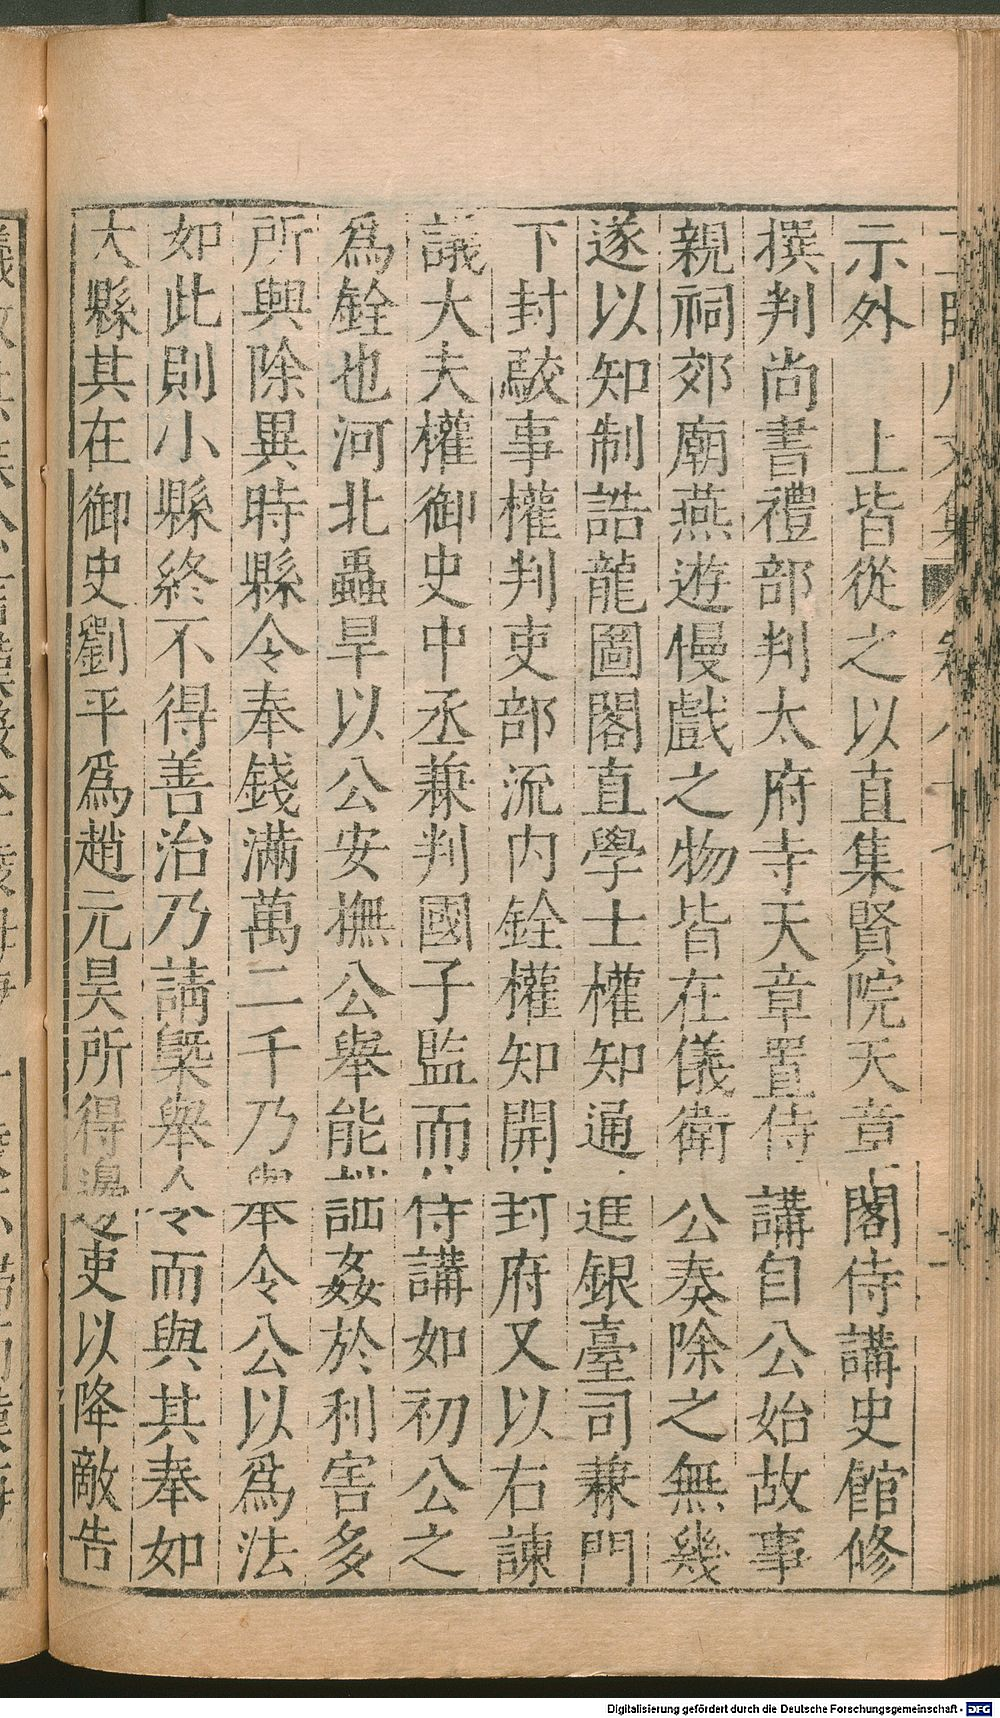 示外　上皆從之以直集賢院天章閣侍講史館修
撰判尚書禮部判太府寺天章置侍講自公始故事
親祠郊廟燕遊慢戲之物皆在儀衛公奏除之無幾
遂以知制誥龍圖閣直學士權知通進銀臺司兼門
下封駮事權判吏部流內銓權知開封府又以右諫
議大夫權御史中丞兼判國子監而侍講如初公之
爲銓也河北蟲旱以公安撫公舉能詘姦於利害多
所興除異時縣令奉錢滿萬二千乃舉令公以爲法
如此則小縣終不得善治乃請槩舉令而與其奉如
大縣其在御史劉平爲趙元昊所得邊吏以降敵告
Digitalisierung gefördert durch die Deutsche Forschungsgemeinschaft - DFG